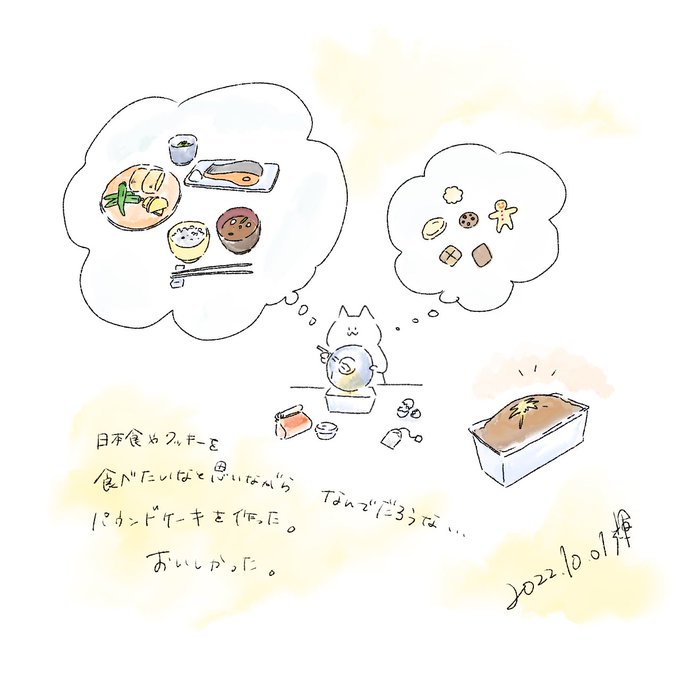 日本食やクッキーを
食べたいなと思いながら
パウンドケーキを作った。
おいしかった。
なんでだろうな...
2022.10.01 輝